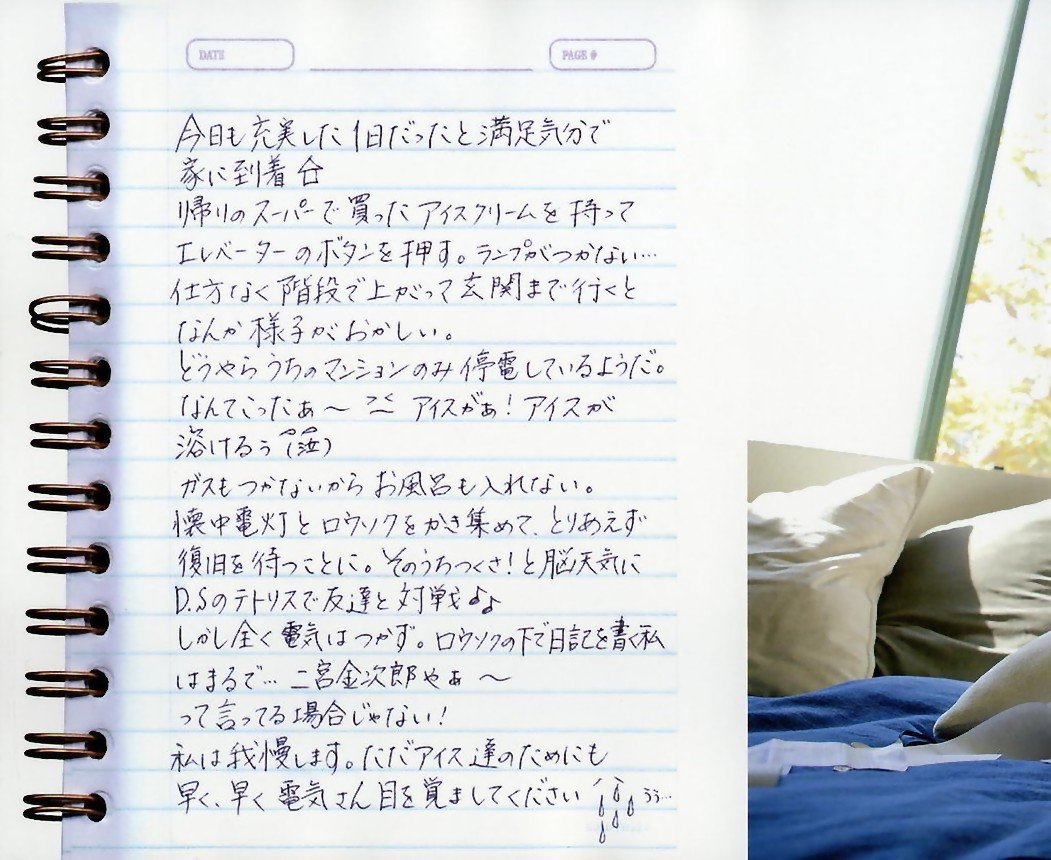 DATE
PAGE #
今日も充実した1日だったと満足気分で
家に到着
帰りのスーパーで買ったアイスクリームを持って
エレベーターのボタンを押す。ランプがつかない…
仕方なく階段で上がって玄関まで行くと
なんか様子がおかしい。
どうやらうちのマンションのみ停電しているようだ。
なんてこったぁ〜 アイスがぁ!アイスが
溶けるぅ(泣)
ガスもつかないからお風呂も入れない。
懐中電灯とロウソクをかき集めて、とりあえず
復旧を待つことに。そのうちつくさ!と脳天気に
D.Sのテトリスで友達と対戦♪♪
しかし全く電気はつかず。ロウソクの下で日記を書く私
はまるで…二宮金次郎やぁ〜
って言ってる場合じゃない!
私は我慢します。ただアイス達のためにも
早く、早く電気さん目を覚ましてください うぅ…